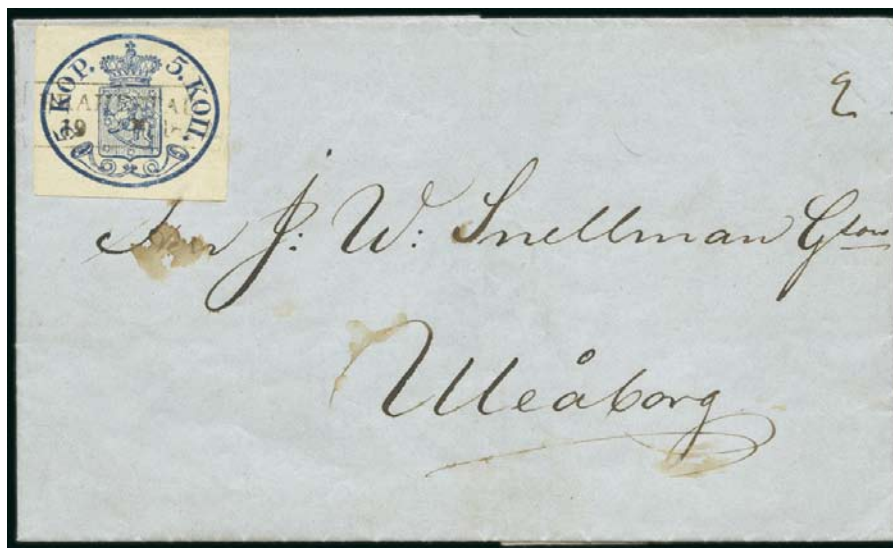 5. KOP. 5. КОП.
BRAHESTAD
19
2
Herr J: W: Snellman Gson
Uleåborg